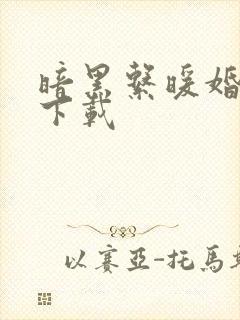 暗黑繫暖婚
下載
以賽亞-托馬斯